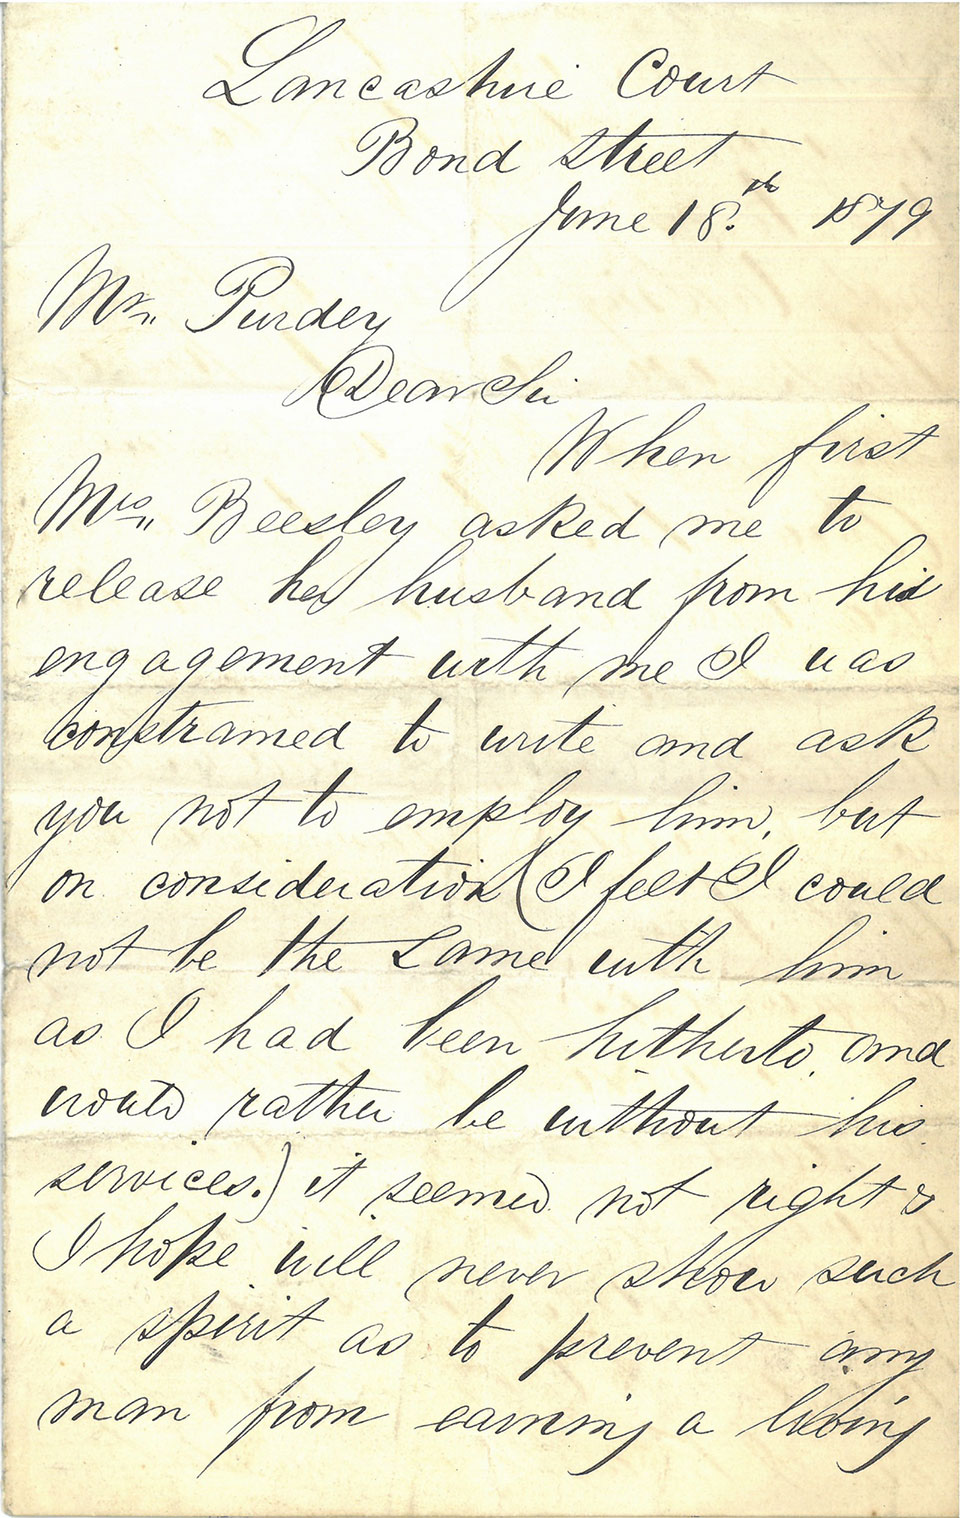 Lancashire Court
Bond Street
June 18.th 1879
Mr. Purdey
Dear Sir
When first
Mrs. Beesley asked me to
release her husband from his
engagement with me I was
constrained to write and ask
you not to employ him, but
on consideration (I felt I could
not be the same with him
as I had been hitherto, and
would rather be without his
services.) it seemed not right &
I hope will never show such
a spirit as to prevent any
man from earning a living